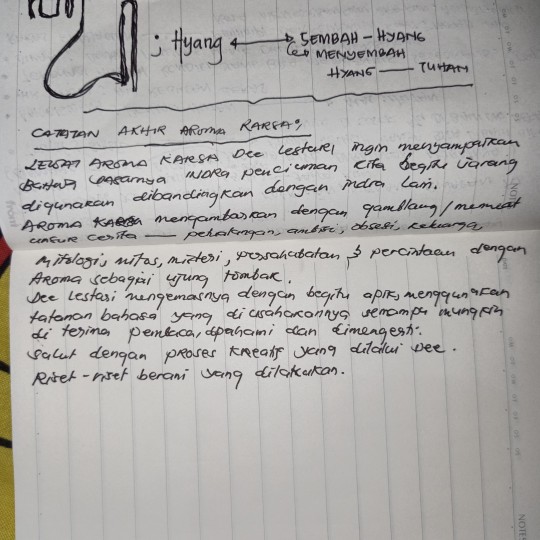 ; Hyang ↔ SEMBAH - HYANG
MENYEMBAH
HYANG — TUHAN
CATATAN AKHIR AROMA KARSA;
LEWAT AROMA KARSA Dee Lestari ingin menyampaikan
bahwa INDRA penciuman kita begitu jarang
digunakan dibandingkan dengan indra lain.
AROMA KARSA mengambarkan dengan gamblang / memuat
unsur cerita — petualangan, ambisi, obsesi, keluarga,
Mitologi, mitos, misteri, persahabatan & percintaan dengan
Aroma sebagai ujung tombak.
Dee Lestari mengemasnya dengan begitu apik, menggunakan
tatanan bahasa yang di usahakannya semampu mungkin
di terima pembaca, dipahami dan dimengerti.
Salut dengan proses kreatif yang dilalui Dee.
Riset-riset berani yang dilakukan.
NOTES